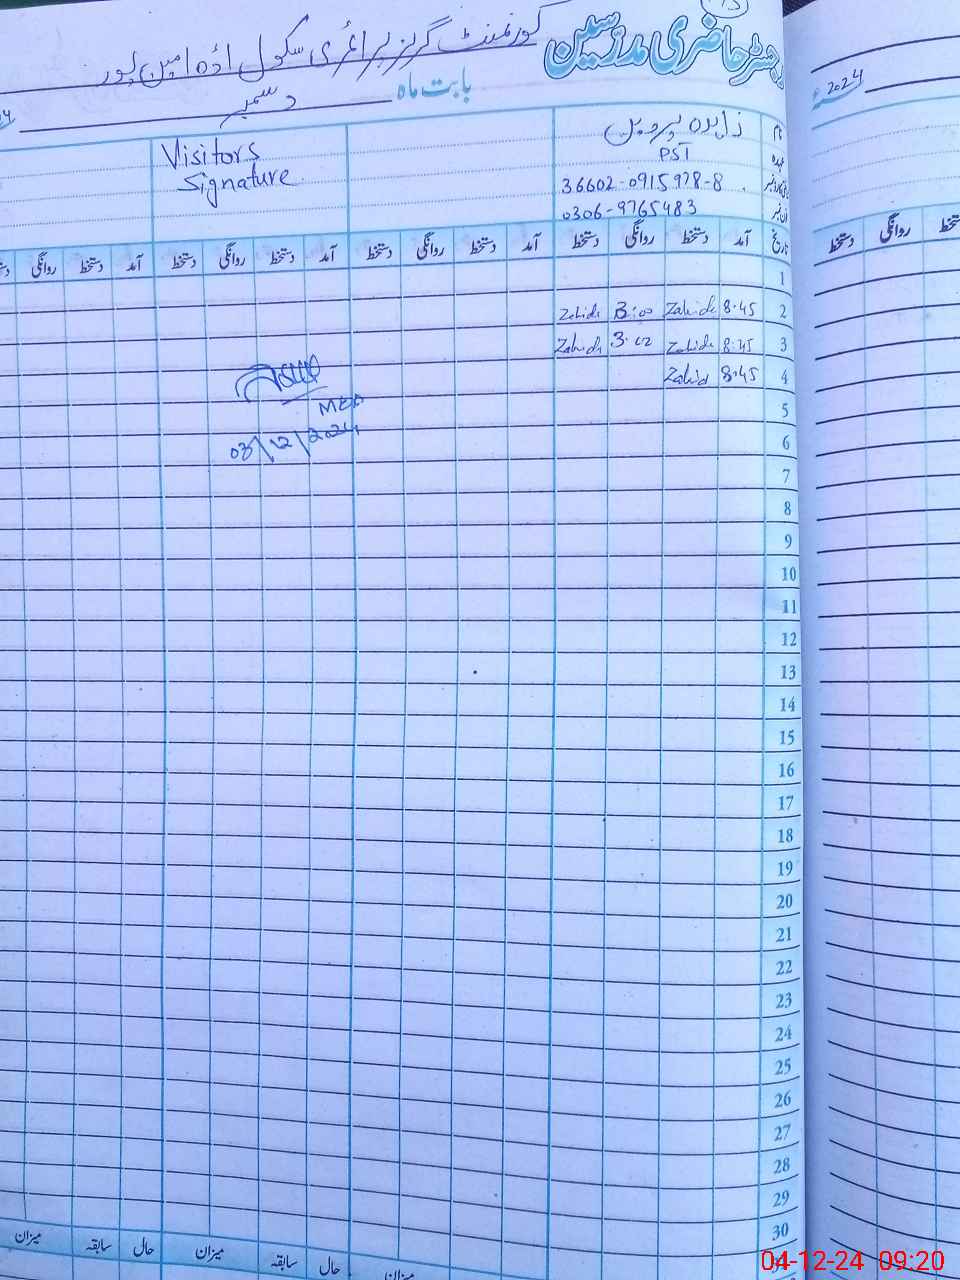 رجسٹر حاضری مدرسین گورنمنٹ گرلز پرائمری سکول اڈہ امین پور
بابت ماہ دسمبر
2024
نام زاہدہ پروین
عہدہ PST
36602-0915978-8
فون نمبر 0306-9765483
Visitors
Signature
تاریخ آمد دستخط روانگی دستخط آمد دستخط روانگی دستخط آمد دستخط روانگی دستخط آمد دستخط روانگی
روانگی دستخط
1
2 8:45 Zahida 3:00 Zahida
3 8:45 Zahida 3:02 Zahida
4 8:45 Zahida
MEA
03/12/2024
5
6
7
8
9
10
11
12
13
14
15
16
17
18
19
20
21
22
23
24
25
26
27
28
29
30
میزان حال سابقہ میزان حال سابقہ میزان
04-12-24 09:20